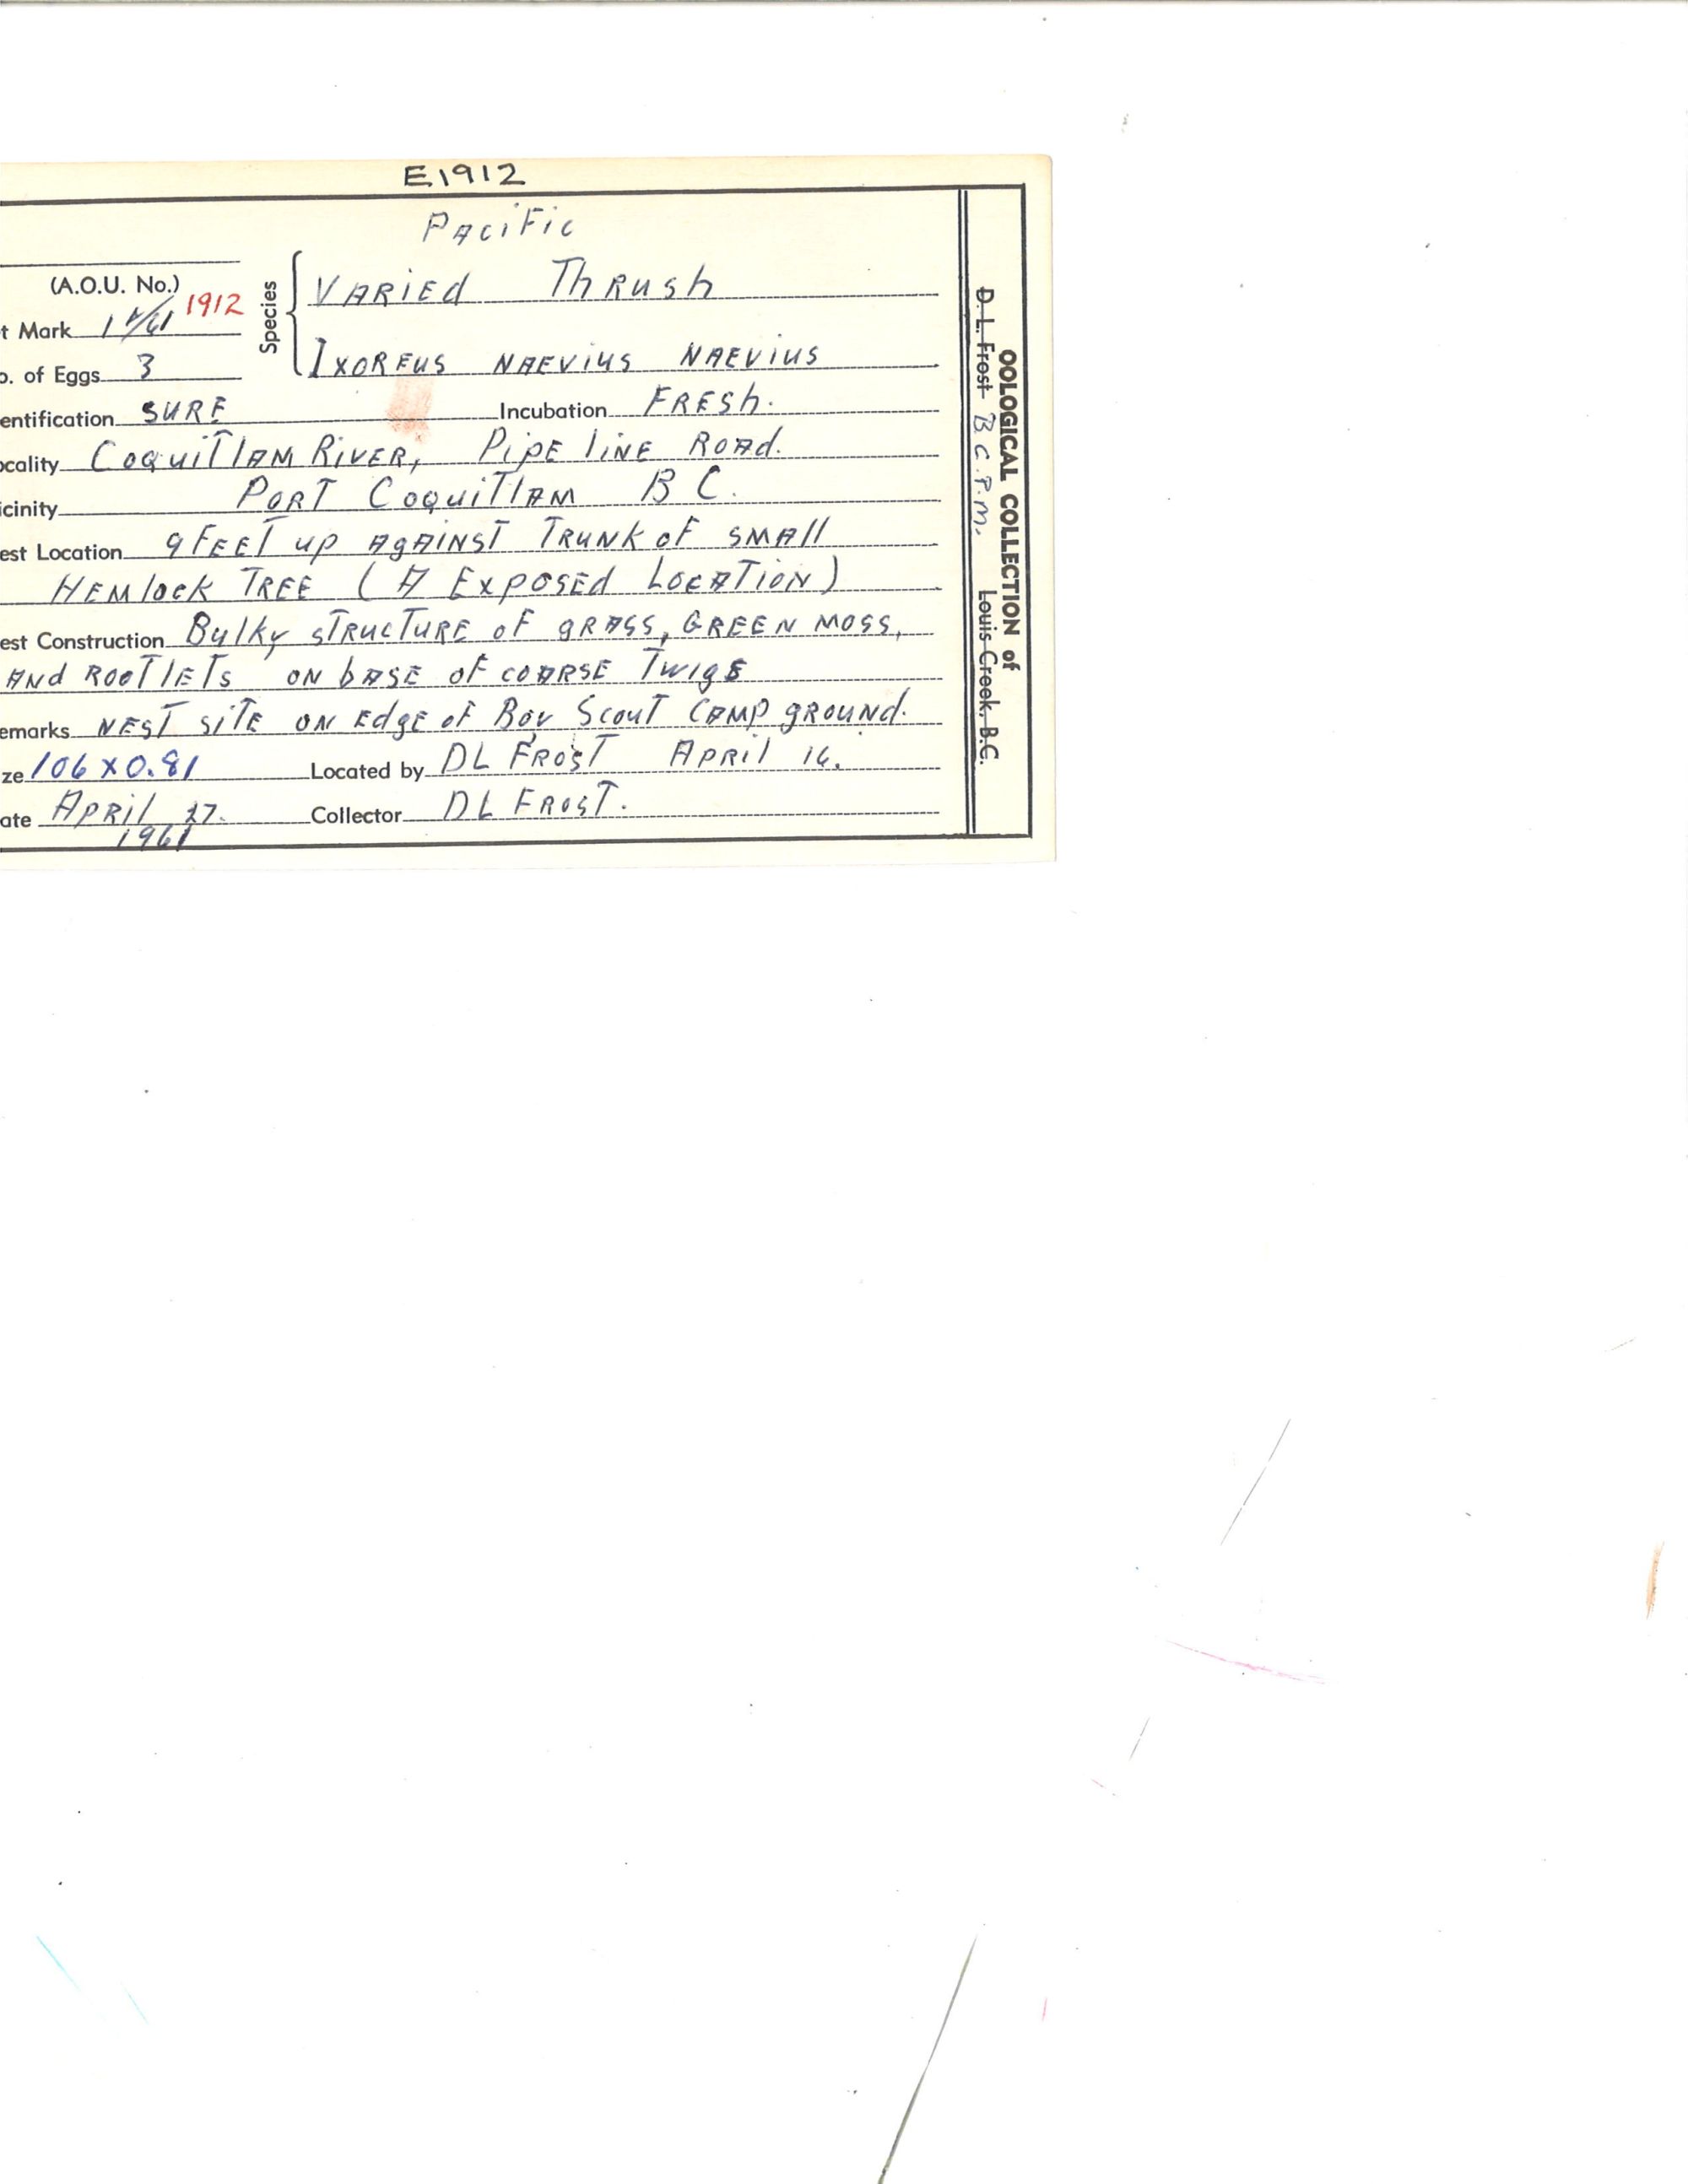 E1912
Pacific
(A.O.U. No.)
Species
VARIED Thrush
t Mark 1912
IXOREUS NAEVIUS NAEVIUS
o. of Eggs 3
entification SURE Incubation FRESh.
ocality Coquitlam River, Pipe line Road.
icinity Port Coquitlam B C.
est Location 9 feet up against trunk of small
Hemlock Tree (A Exposed Location)
est Construction Bulky structure of grass, green moss,
and rootlets on base of coarse twigs
emarks Nest site on edge of Boy Scout Camp ground.
ze 106 x 0.81 Located by DL Frost April 16.
ate April 27. Collector DL Frost.
1961
OOLOGICAL COLLECTION of
D. L. Frost B.C.P.M. Louis Creek, B.C.